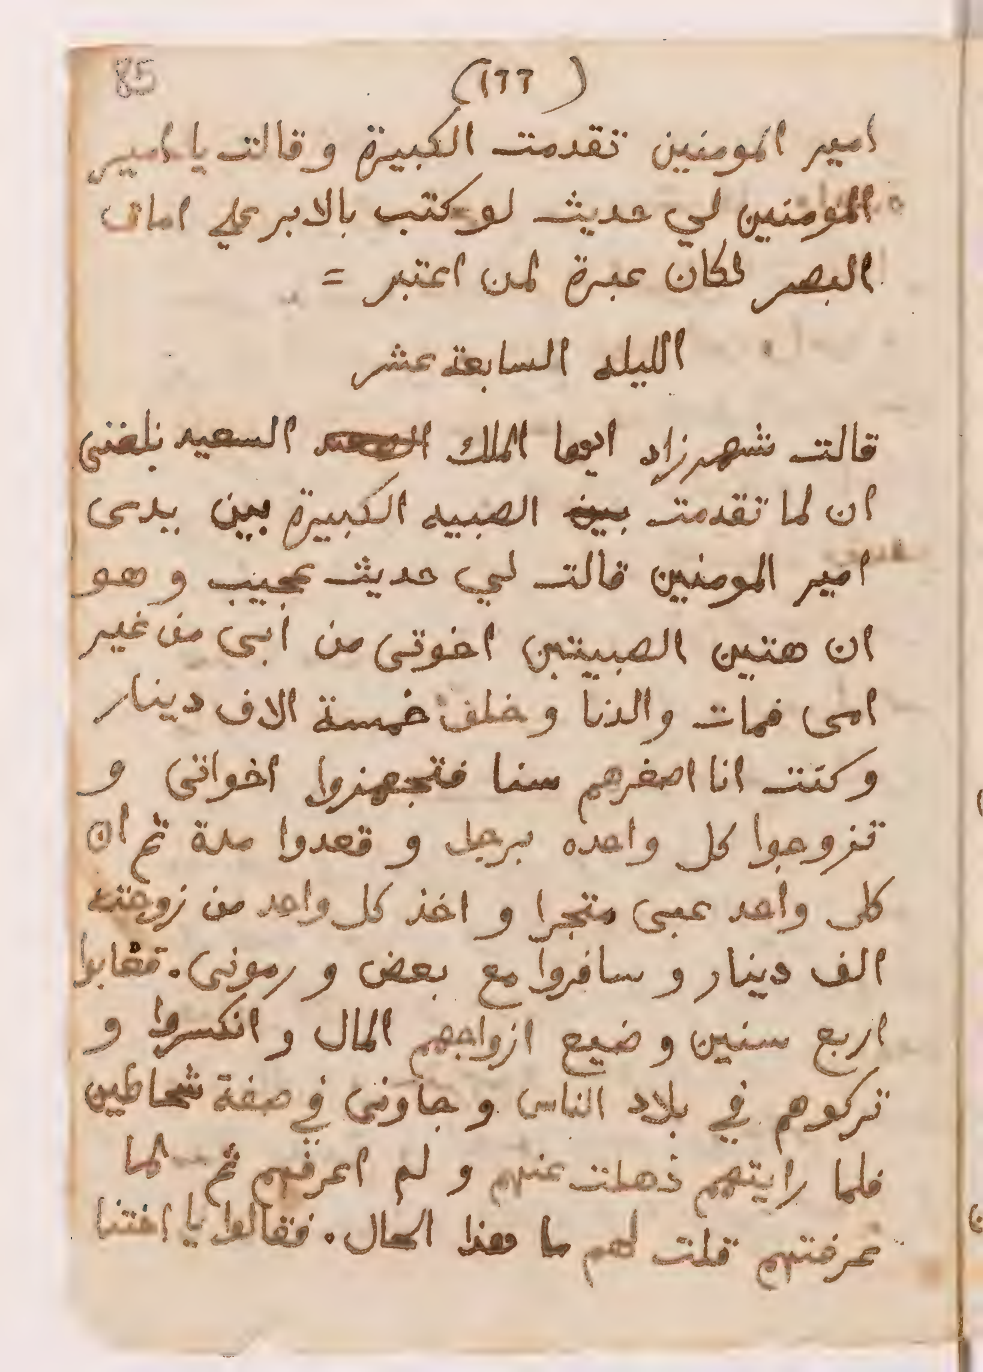 85
(١٦٦)
امير المومنين تقدمت الكبيرة و قالت يا امير
المومنين لي حديث لو كتب بالابر علي اماق
البصر لكان عبرة لمن اعتبر =
الليله السابعة عشر
قالت شهرزاد ايها الملك السعيد بلغنى
ان لما تقدمت بين الصبيه الكبيرة بين يدى
امير المومنين قالت لي حديث عجيب و هو
ان هتين الصبيتين اخوتى من أبى من غير
امى فمات والدنا و خلف خمسة الاف دينار
وكنت انا اصغرهم سنا فتجهزوا اخواتى و
تزوجوا كل واحده برجل و قعدوا مدة ثم ان
كل واحد عبى متجرا و اخذ كل واحد من زوجته
الف دينار و سافروا مع بعض و رمونى. فغابوا
اربع سنين و ضيع ازواجهم المال و انكسروا و
تركوهم في بلاد الناس و جاونى في صفة شحاطين
فلما رايتهم ذهلت عنهم و لم اعرفهم ثم لما
عرفتهم قلت لهم ما هذا الحال. فقالوا يا اختنا